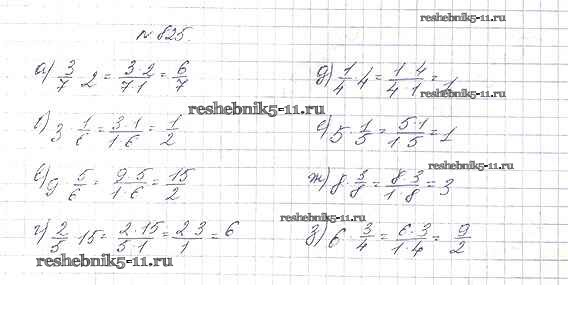 reshebnik5-11.ru
№ 825.
а) 3/7 · 2 = 3·2/7·1 = 6/7
б) 3 · 1/6 = 3·1/1·6 = 1/2
в) 9 · 5/6 = 9·5/1·6 = 15/2
г) 2/5 · 15 = 2·15/5·1 = 2·3/1 = 6
д) 1/4 · 4 = 1·4/4·1 = 1
е) 5 · 1/5 = 5·1/1·5 = 1
ж) 8 · 3/8 = 8·3/1·8 = 3
з) 6 · 3/4 = 6·3/1·4 = 9/2
reshebnik5-11.ru
reshebnik5-11.ru
reshebnik5-11.ru
reshebnik5-11.ru
reshebnik5-11.ru